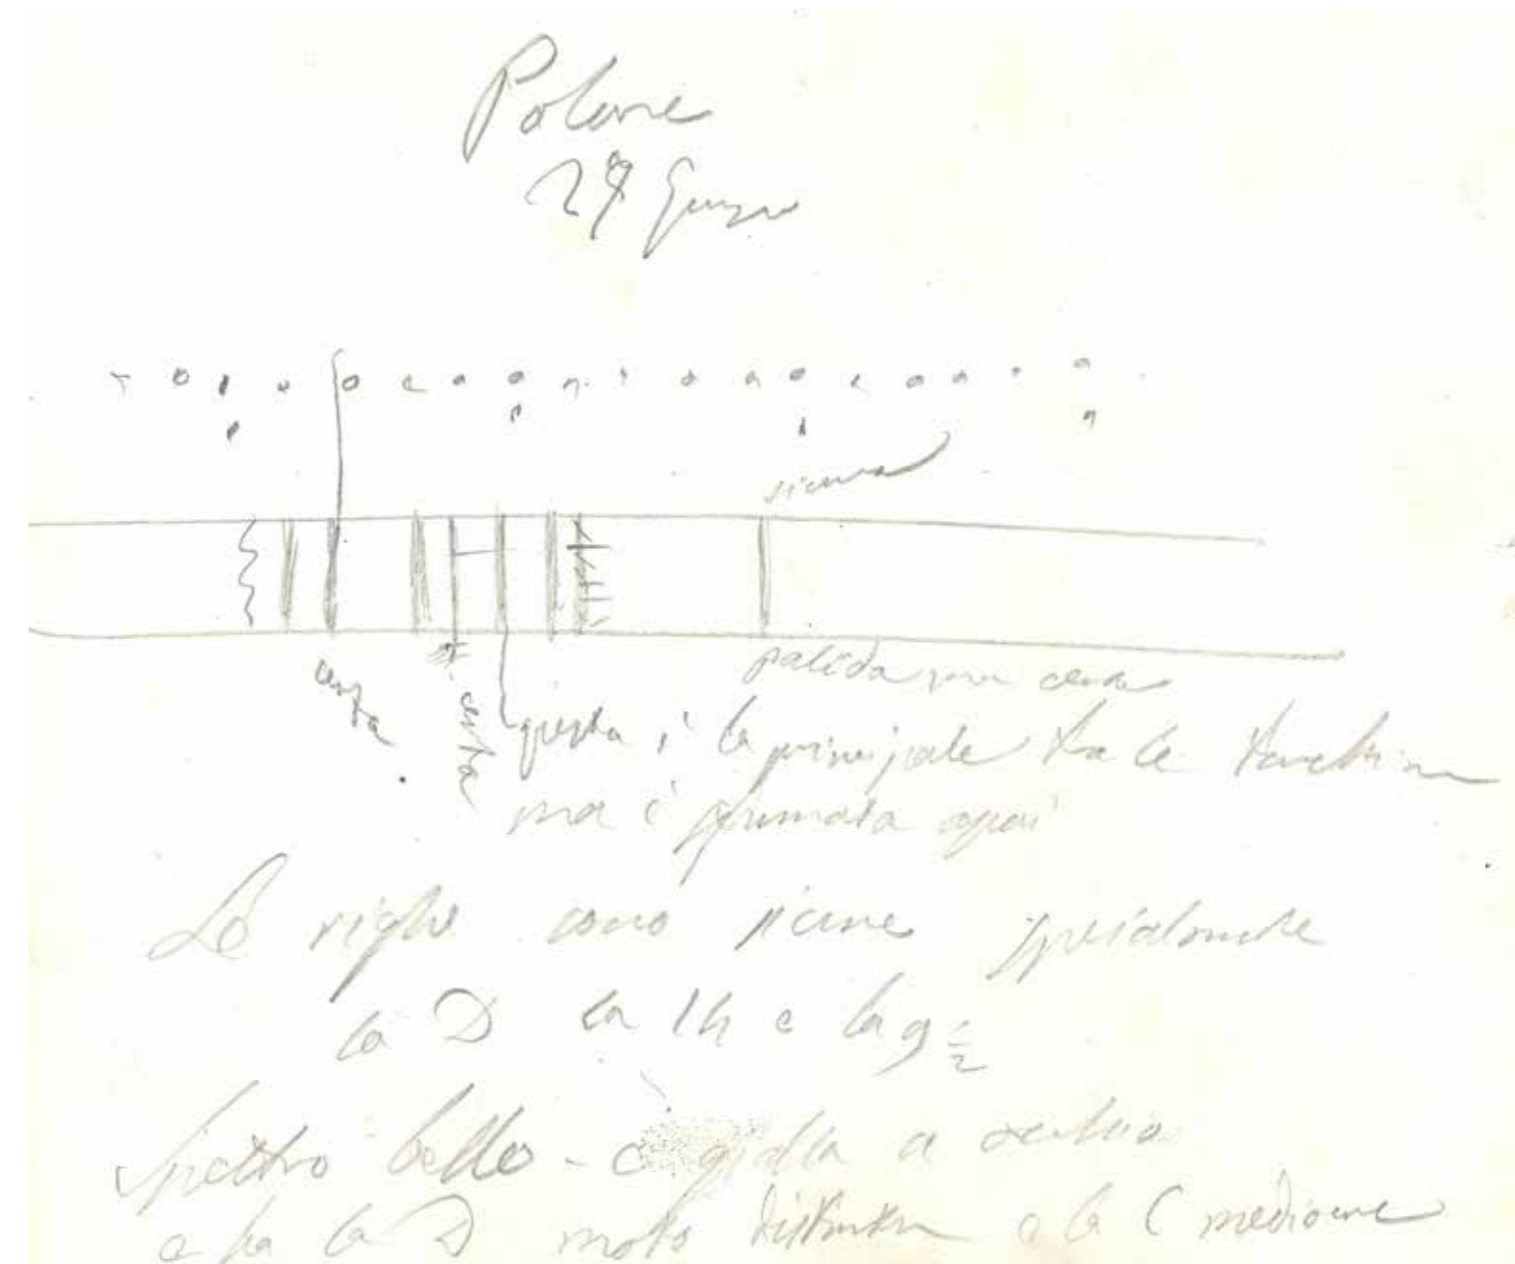 Polare
27 Giugno
sicura
certa
certa
palida ma certa
questa è la principale tra le turchine
ma è sfumata assai
Le righe sono sicure specialmente
la D la 1h e la g 1/2
Spettro bello - è gialla a occhio
e ha la D molto distinta e la C mediocre